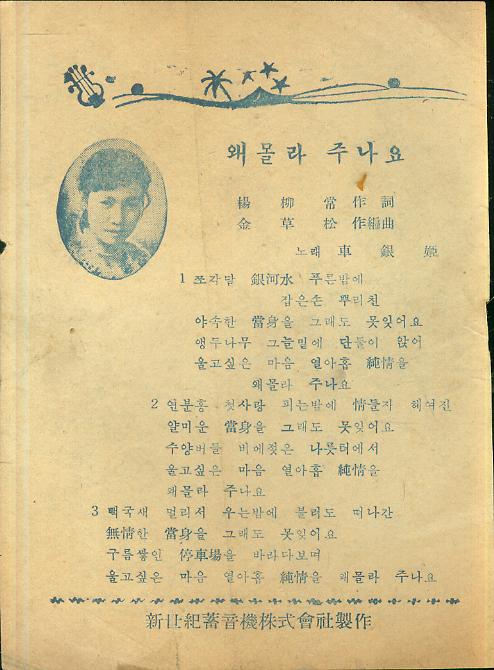 왜몰라 주나요
楊柳常 作詞
金草松 作編曲
노래 車銀姬
1 쪼각달 銀河水 푸른밤에
잡은손 뿌리친
야속한 當身을 그래도 못잊어요
앵두나무 그늘밑에 단둘이 앉어
울고싶은 마음 열아홉 純情을
왜몰라 주나요
2 연분홍 첫사랑 피는밤에 情들자 헤여진
얄미운 當身을 그래도 못잊어요
수양버들 비에젖은 나룻터에서
울고싶은 마음 열아홉 純情을
왜몰라 주나요
3 뻑국새 멀리서 우는밤에 불러도 떠나간
無情한 當身을 그래도 못잊어요
구름쌓인 停車場을 바라다보며
울고싶은 마음 열아홉 純情을 왜몰라 주나요
新世紀蓄音機株式會社製作